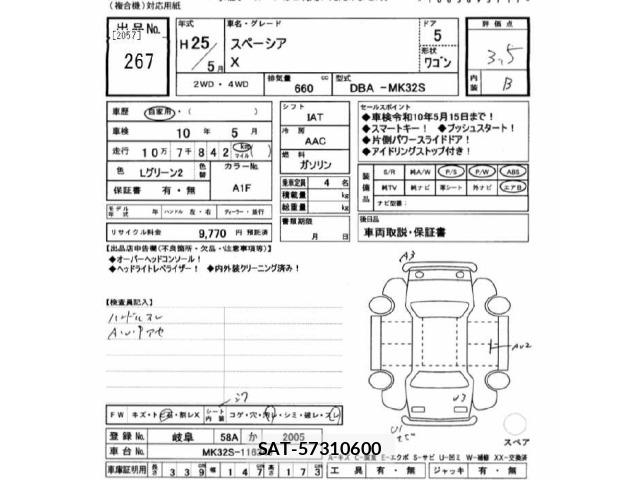 (複合機)対応用紙
出品No.
[2057]
267
年式
H25/5月
車名・グレード
スペーシア
X
ドア
5
形状
ワゴン
評価点
3.5
内装
B
2WD・4WD
排気量
660
cc
型式
DBA-MK32S
車歴
自家用・( )
車検
10年5月
走行
10万7千842
km
マイル
色
Lグリーン2
色替
カラーNo.
A1F
保証書 有・無
モデル年式 年
ハンドル 左・右
ディーラー・並行
リサイクル料金
9,770円預託済
シフト
IAT
冷房
AAC
燃料
ガソリン
乗車定員 4名
積載量 kg
総重量 kg
書類期限
月 日
セールスポイント
◆車検令和10年5月15日まで!
◆スマートキー! ◆プッシュスタート!
◆片側パワースライドドア!
◆アイドリングストップ付き!
装備品
S/R 純A/W P/S P/W ABS
純TV 純ナビ 革シート 外ナビ エアB
ナビ型番:
後日品
車両取説・保証書
【出品店申告欄(不良箇所・欠品・注意事項等)】
◆オーバーヘッドコンソール!
◆ヘッドライトレベライザー! ◆内外装クリーニング済み!
【検査員記入】
ハンドルスレ
A3
AU2
U3
U1
スペア
FW キズ・トビ石・割レX
シート内装
コゲ・穴・汚レ・シミ・破レ・スレ
登録No.
岐阜 58A か 2005
車台No.
MK32S-116
SAT-57310600
A-キズ
E-エクボ S-サビ U-凹ミ W-補修 XX-交換済
車庫証明用 長さ 339 幅 147 高さ 173
工具 有・無
ジャッキ 有・無